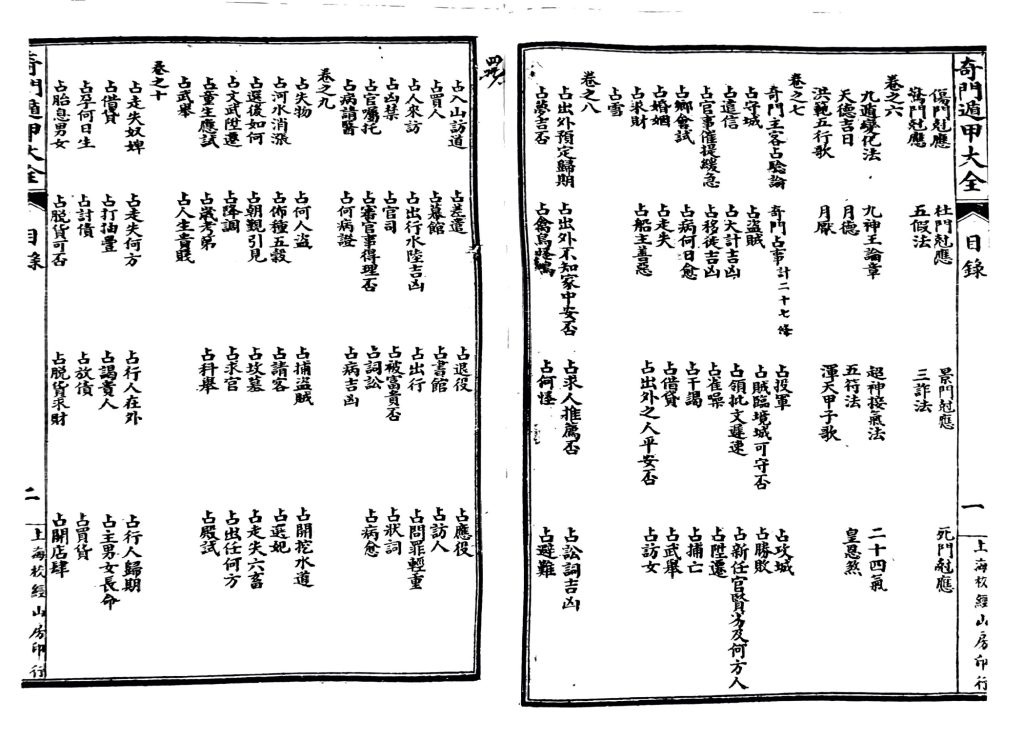 奇門遁甲大全 目錄 一 上海校經山房印行
傷門尅應 杜門尅應 景門尅應 死門尅應
驚門尅應 五假法 三詐法
卷之六
九遁變化法 九神王論章 超神接氣法 二十四氣
天德吉日 月德 五符法 皇恩煞
洪範五行歌 月厭 渾天甲子歌
卷之七
奇門主客占驗論 奇門占事計二十七條
占守城 占盜賊 占投軍 占攻城
占遣信 占大計吉凶 占賊臨境城可守否 占勝敗
占官事催提緩急 占移徙吉凶 占領批文遲速 占新任官賢劣及何方人
占鄉會試 占病何日愈 占雀噪 占陞遷
占婚姻 占走失 占干謁 占捕亡
占求財 占船主善惡 占借貸 占武舉
占雪 占出外之人平安否 占訪女
卷之八
占出外預定歸期 占出外不知家中安否 占求人推薦否 占訟詞吉凶
占夢吉否 占禽鳥怪鳴 占何怪 占避難
占入山訪道 占差遣 占退役 占應役
占買人 占幕館 占書館 占訪人
占人來訪 占出行水陸吉凶 占出行 占問罪輕重
占凶禁 占官司 占被富貴否 占狀詞
占官囑托 占審官事得理否 占詞訟 占病愈
占病請醫 占何病證 占病吉凶
卷之九
占失物 占何人盜 占捕盜賊 占開挖水道
占河水消漲 占佈種五穀 占請客 占選妃
占選後如何 占朝覲引見 占坟墓 占走失六畜
占文武陞遷 占降調 占求官 占出任何方
占童生應試 占歲考第 占科舉 占殿試
占武舉 占人生貴賤
卷之十
占走失奴婢 占走失何方 占行人在外 占行人歸期
占借貸 占打抽豐 占謁貴人 占主男女長命
占孕何日生 占討債 占放債 占買貨
占胎息男女 占脫貨可否 占脫貨求財 占開店肆
奇門遁甲大全 目錄 二 上海校經山房印行